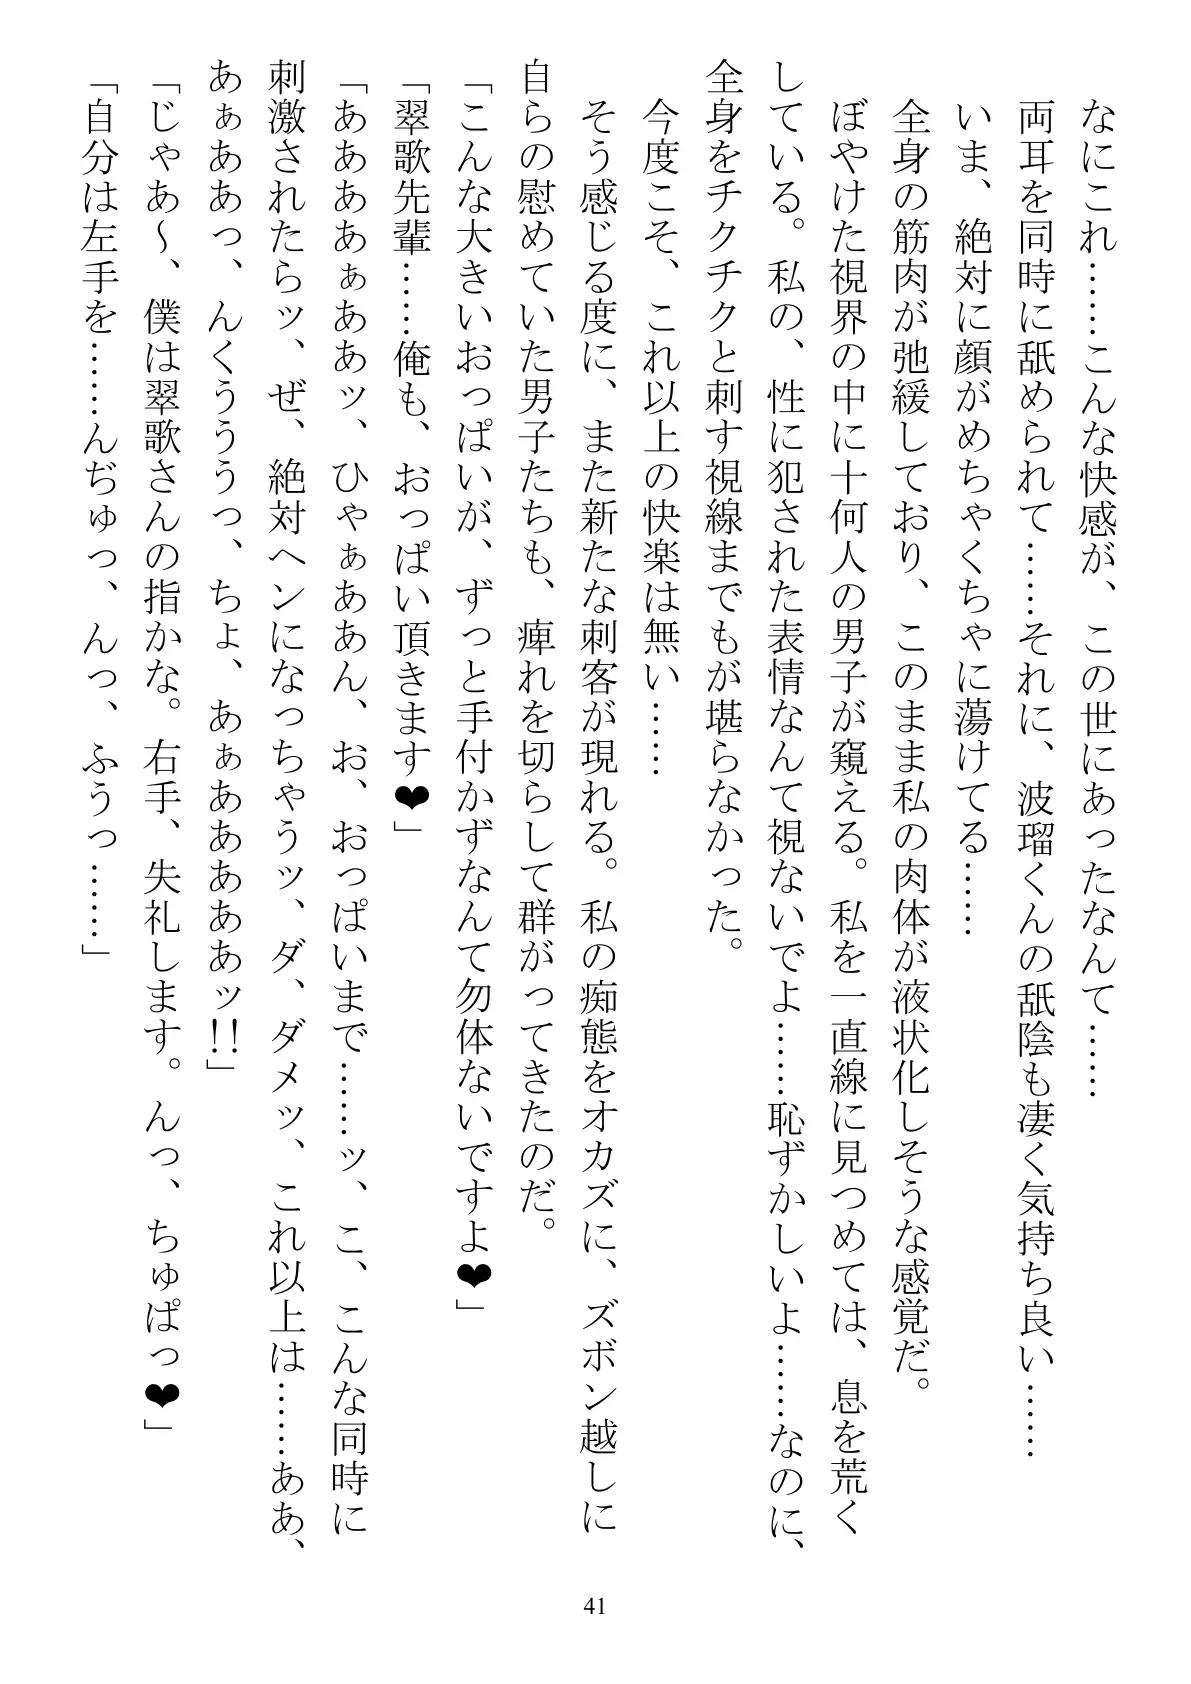 なにこれ……こんな快感が、この世にあったなんて……
両耳を同時に舐められて……それに、波瑠くんの舐陰も凄く気持ち良い……
いま、絶対に顔がめちゃくちゃに蕩けてる……
全身の筋肉が弛緩しており、このまま私の肉体が液状化しそうな感覚だ。
ぼやけた視界の中に十何人の男子が窺える。私を一直線に見つめては、息を荒く
している。私の、性に犯された表情なんて視ないでよ……恥ずかしいよ……なのに、
全身をチクチクと刺す視線までもが堪らなかった。
今度こそ、これ以上の快楽は無い……
そう感じる度に、また新たな刺客が現れる。私の痴態をオカズに、ズボン越しに
自らの慰めていた男子たちも、痺れを切らして群がってきたのだ。
「こんな大きいおっぱいが、ずっと手付かずなんて勿体ないですよ❤」
「翠歌先輩……俺も、おっぱい頂きます❤」
「ああああぁああッ、ひゃぁああん、お、おっぱいまで……ッ、こ、こんな同時に
刺激されたらッ、ぜ、絶対ヘンになっちゃうッ、ダ、ダメッ、これ以上は……ああ、
あぁああっ、んくうううっ、ちょ、あぁああああぁッ!!」
「じゃあ～、僕は翠歌さんの指かな。右手、失礼します。んっ、ちゅぱっ❤」
「自分は左手を……んぢゅっ、んっ、ふうっ……」
41